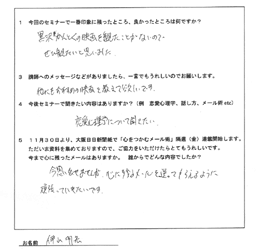 1 今回のセミナーで一番印象に残ったところ、良かったところは何ですか？
黒沢
の映画を観たことがないので、
ぜひ観たいと思いました。
3 講師へのメッセージなどがありましたら、一言でもうれしいのでお願いします。
他にもおすすめの映画を教えて下さい。
4 今後セミナーで聞きたい内容はありますか？（例 恋愛心理学、話し方、メール術 etc）
恋愛心理学について聞きたい。
5 １１月３０日より、大阪日日新聞紙で「心をつかむメール術」隔週（金）連載開始します。
ただいま資料を集めておりますので、ご協力をいただけたらとてもうれしいです。
今まで心に残ったメールはありますか。 誰からでどんな内容でしたか？
メールを送ってもらえるように
頑張っていきたいです。
お名前